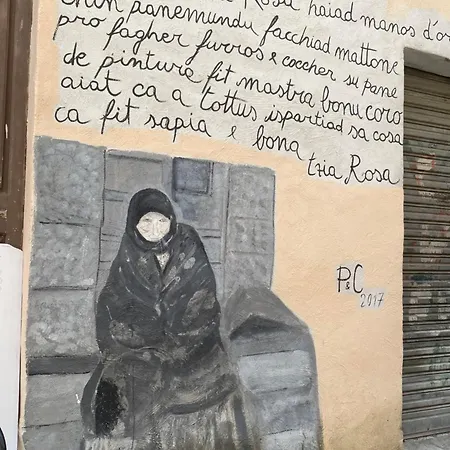 Rosa haiad manos d'or
chin panemundu facchiad mattone
pro fagher furros e coccher su pane
de pintura fit mastra bonu coro
aiat ca a tottus ispartiad sa cosa
ca fit sapia e bona tzia Rosa
P&C
2017